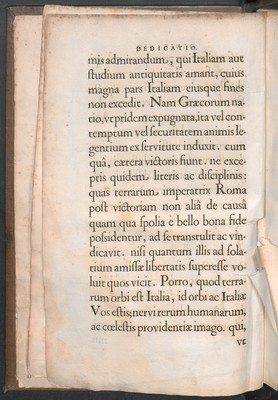 DEDICATIO.
mis admirandum, qui Italiam aut
studium antiquitatis amant, cuius
magna pars Italiam eiusque fines
non excedit. Nam Græcorum na-
tio, vt pridem expugnata, ita vel con-
temptum vel securitatem animis le-
gentium ex seruitute induxit. cum
quâ, cætera victoris fiunt. ne exce-
ptis quidem literis ac disciplinis:
quas terrarum imperatrix Roma
post victoriam non aliâ de causâ
quam qua spolia è bello bona fide
possidentur, ad se transtulit ac vin-
dicauit. nisi quantum illis ad sola-
tium amissæ libertatis superesse vo-
luit quos vicit. Porro, quod terra-
rum orbi est Italia, id orbi ac Italiæ
Vos estis; nerui rerum humanarum,
ac cœlestis prouidentiæ imago. qui,
vt